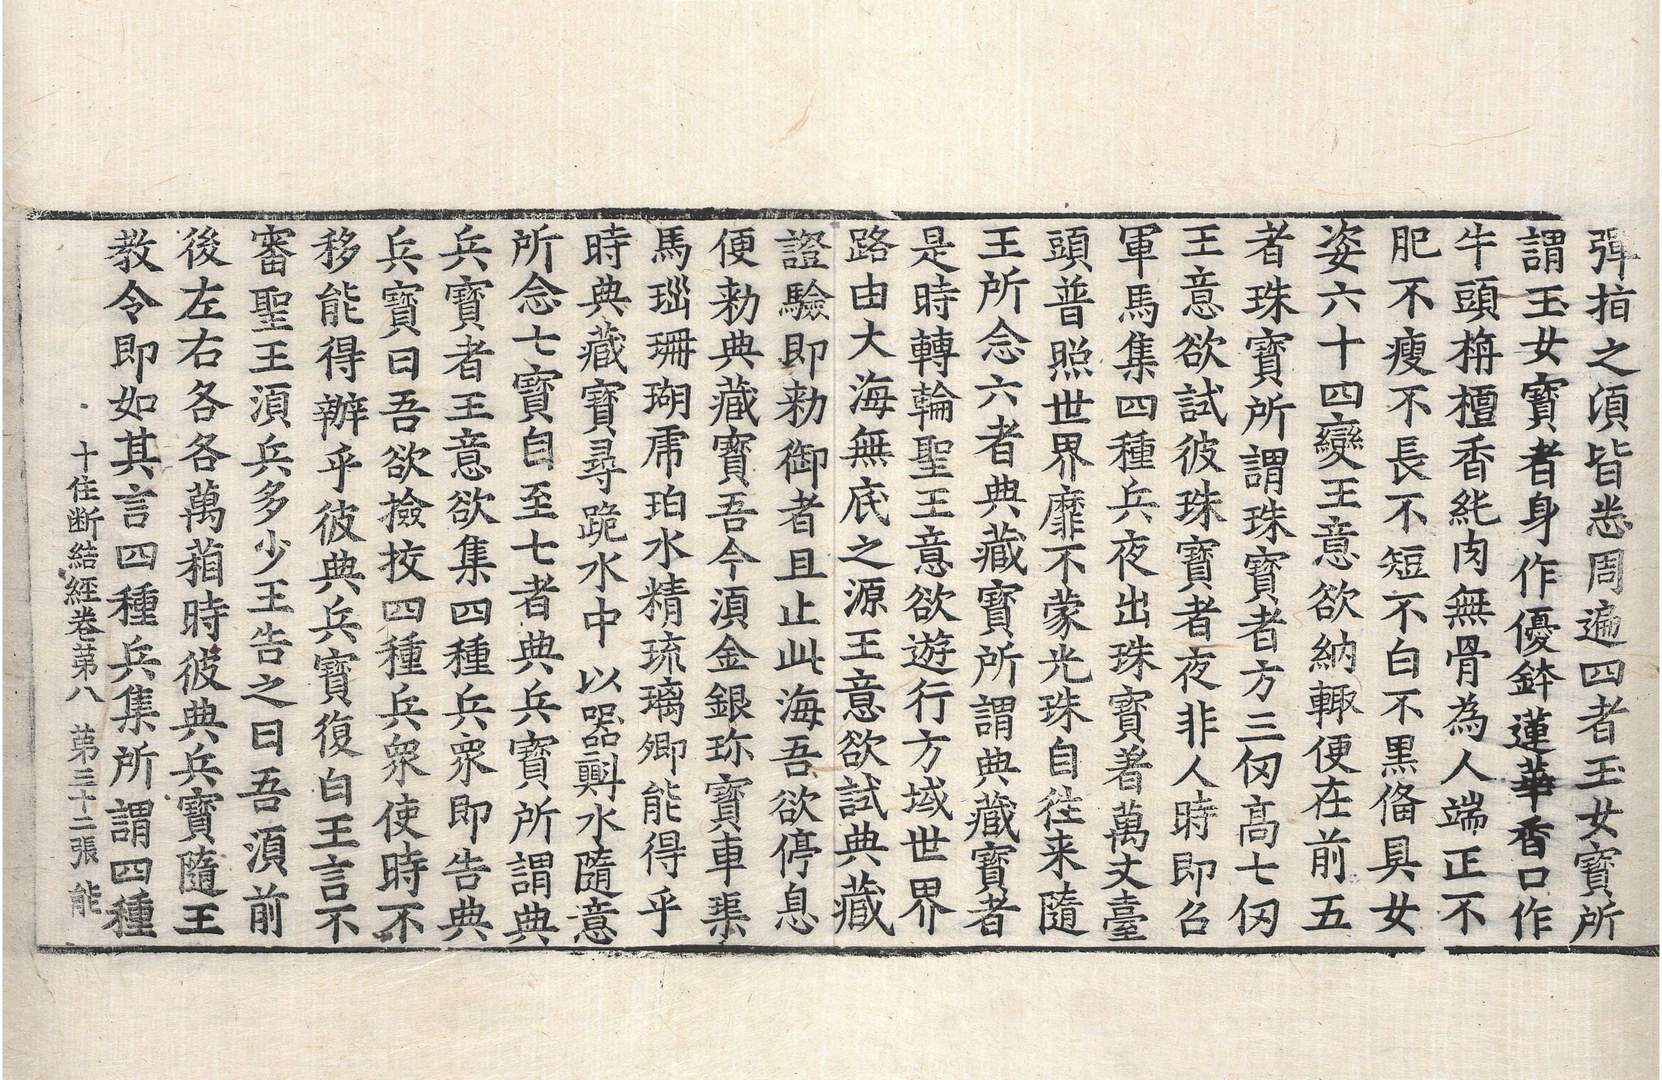 彈指之湏皆悉周遍四者玉女寶所
謂玉女寶者身作優鉢蓮華香口作
牛頭栴檀香純肉無骨為人端正不
肥不瘦不長不短不白不黒俻具女
姿六十四變王意欲納輙便在前五
者珠寶所謂珠寶者方三仞髙七仞
王意欲試彼珠寶者夜非人時即召
軍馬集四種兵夜出珠寶著萬丈臺
頭普照世界靡不蒙光珠自往来隨
王所念六者典藏寶所謂典藏寶者
是時轉輪聖王意欲遊行方域世界
路由大海無底之源王意欲試典藏
證驗即勑御者且止此海吾欲停息
便勑典藏寶吾今湏金銀珎寶車𤦲
馬瑙珊瑚虎珀水精琉璃卿能得乎
時典藏寶尋跪水中以器㪺水隨意
所念七寶自至七者典兵寶所謂典
兵寶者王意欲集四種兵衆即告典
兵寶曰吾欲撿挍四種兵衆使時不
移能得辦乎彼典兵寶復白王言不
審聖王湏兵多少王告之曰吾湏前
後左右各各萬葙時彼典兵寶隨王
教令即如其言四種兵集所謂四種
十住断結經卷第八 第三十二張 能